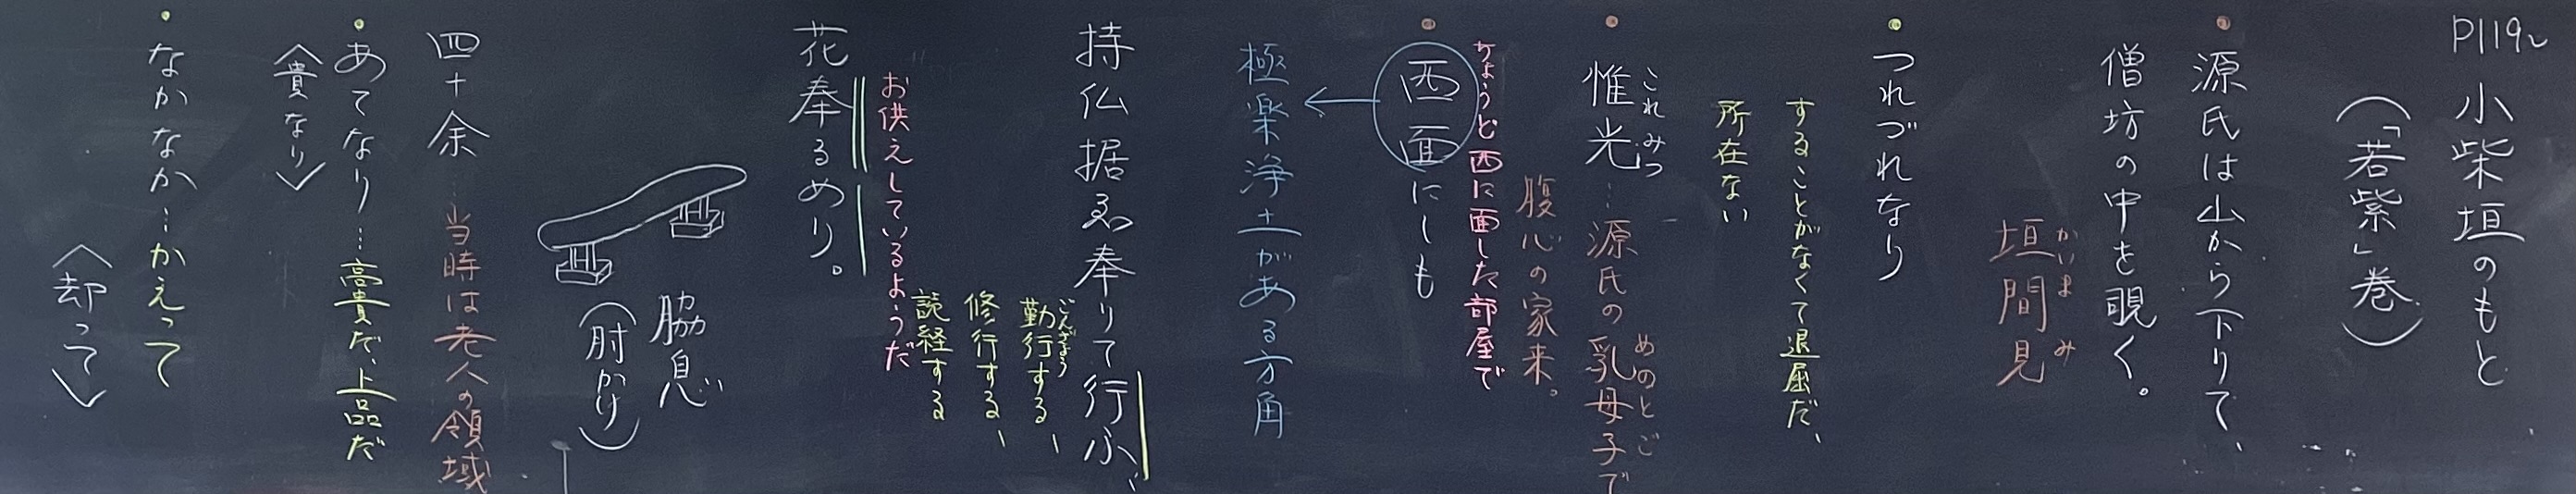 P119～
小柴垣のもと
（「若紫」巻）
源氏は山から下りて、
僧坊の中を覗く。
かいまみ
垣間見
つれづれなり
することがなくて退屈だ、
所在ない
これみつ
惟光…源氏の乳母子で
めのとご
腹心の家来。
ちょうど西に面した部屋で
西面にしも
極楽浄土がある方角
持仏据ゑ奉りて行ふ、
ごんぎょう
勤行する、
修行する、
読経する
お供えしているようだ
花奉るめり。
脇息
（肘かけ）
四十余…当時は老人の領域
あてなり…高貴だ、上品だ
〈貴なり〉
なかなか…かえって
〈却って〉